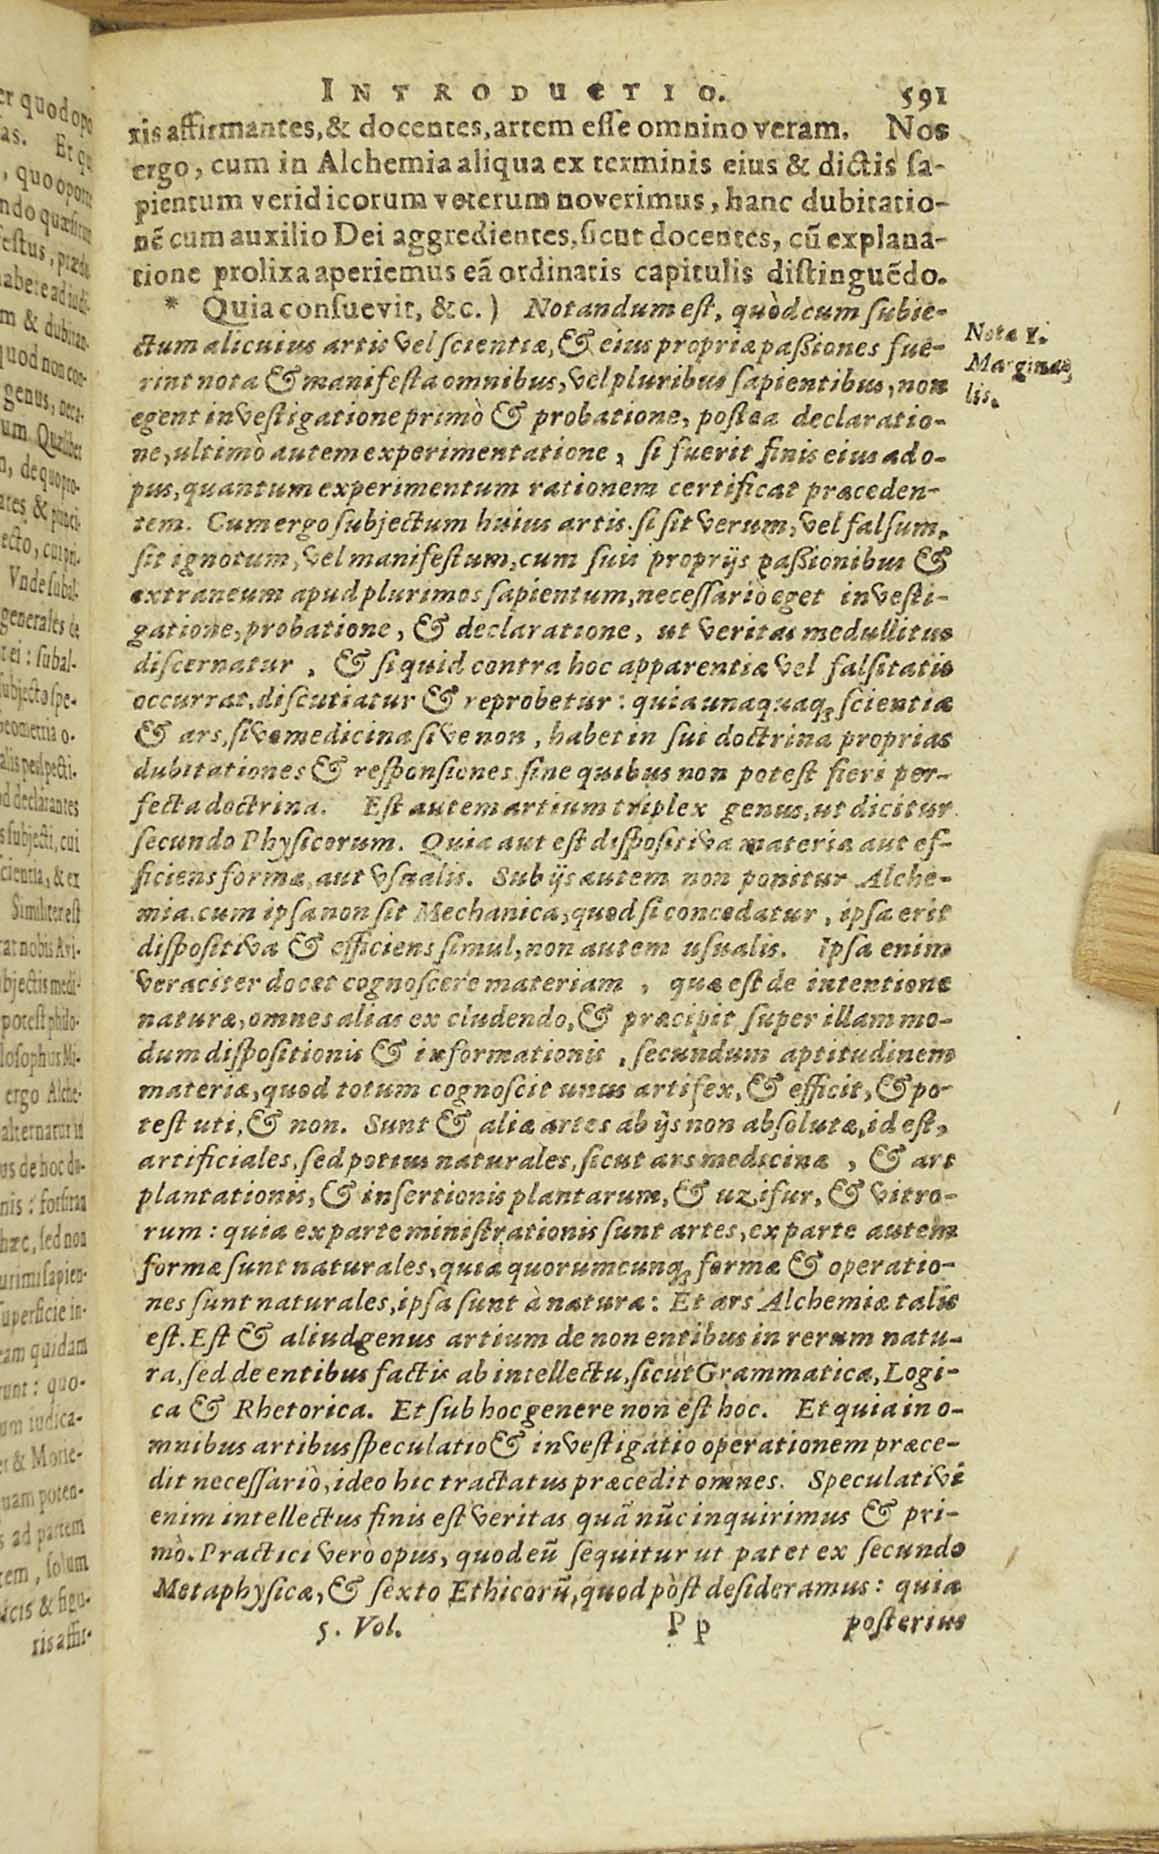 INTRODUCTIO. 591
ris affirmantes, & docentes, artem esse omnino veram. Nos
ergo, cum in Alchemia aliqua ex terminis eius & dictis sa-
pientum veridicorum veterum noverimus, hanc dubitatio-
nē cum auxilio Dei aggredientes, sicut docentes, cū explana-
tione prolixa aperiemus eā ordinatis capitulis distinguēdo.
* Quia consuevit, &c.) Notandum est, quòd cum subie-
ctum alicuius artis vel scientiæ, & eius propriæ passiones fue-
rint nota & manifesta omnibus, vel pluribus sapientibus, non
egent investigatione primò & probatione, postea declaratio-
ne, ultimò autem experimentatione, si fuerit finis eius ad o-
pus, quantum experimentum rationem certificat præceden-
tem. Cum ergo subjectum huius artis. si sit verum, vel falsum,
sit ignotum, vel manifestum, cum suis proprijs passionibus &
extraneum apud plurimos sapientum, necessariò eget investi-
gatione, probatione, & declaratione, ut veritas medullitus
discernatur, & si quid contra hoc apparentiæ vel falsitatis
occurrat, discutiatur & reprobetur: quia unaquaq; scientia
& ars, sive medicina sive non, habet in sui doctrina proprias
dubitationes & responsiones sine quibus non potest fieri per-
fecta doctrina. Est autem artium triplex genus, ut dicitur
secundo Physicorum. Quia aut est dispositiva materiæ aut ef-
ficiens formæ, aut usualis. Sub ijs autem non ponitur Alche-
mia. cum ipsa non sit Mechanica, quod si concedatur, ipsa erit
dispositiva & efficiens simul, non autem usualis. Ipsa enim
veraciter docet cognoscere materiam, quæ est de intentione
naturæ, omnes alias excludendo, & præcipit super illam mo-
dum dispositionis & informationis, secundum aptitudinem
materiæ, quod totum cognoscit unus artifex, & efficit, & po-
test uti, & non. Sunt & aliæ artes ab ijs non absolutæ, id est,
artificiales, sed potius naturales, sicut ars medicinæ, & ars
plantationis, & insertionis plantarum, & uzifur, & vitro-
rum: quia ex parte ministrationis sunt artes, ex parte autem
formæ sunt naturales, quia quorumcunq; formæ & operatio-
nes sunt naturales, ipsa sunt à natura: Et ars Alchemiæ talis
est. Est & aliud genus artium de non entibus in rerum natu-
ra, sed de entibus factis ab intellectu, sicut Grammaticæ, Logi-
ca & Rhetorica. Et sub hoc genere non est hoc. Et quia in o-
mnibus artibus speculatio & investigatio operationem præce-
dit necessariò, ideo hic tractatus præcedit omnes. Speculativi
enim intellectus finis est veritas quā nūc inquirimus & pri-
mò. Practici verò opus, quod eū sequitur ut patet ex secundo
Metaphysicæ, & sexto Ethicorū, quod pòst desideramus: quia
5. Vol. Pp posterius
Nota 1.
Margina-
lis.